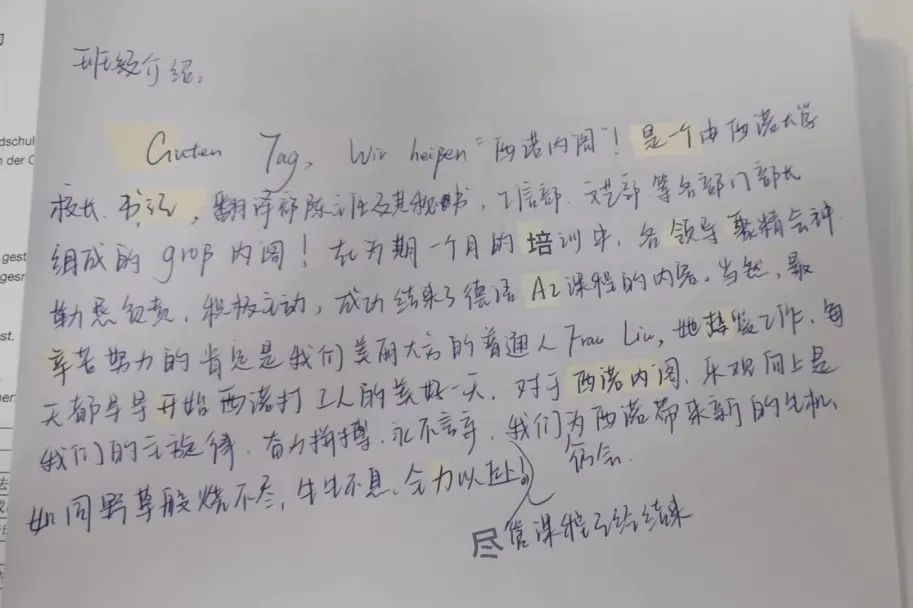 班级介绍：
Guten Tag, Wir heißen “西诺内阁”！是一个由西诺大学
校长、书记，翻译部陈主任及其秘书，工信部、文艺部等各部门部长
组成的 groß 内阁！在为期一个月的培训中，各领导聚精会神、
勤恳负责，积极主动，成功结束了德语A2课程的内容。当然，最
辛苦努力的肯定是我们美丽大方的普通人 Frau Liu，她工作，每
天都早早开始西诺打工人的美好一天。对于西诺内阁，乐观向上是
我们的主旋律，奋力拼搏，永不言弃，我们为西诺带来新的生机，
仍会
如同野草般烧不尽，生生不息，全力以赴！
尽管课程已经结束
dschul
n der G
gest
gesr
st.